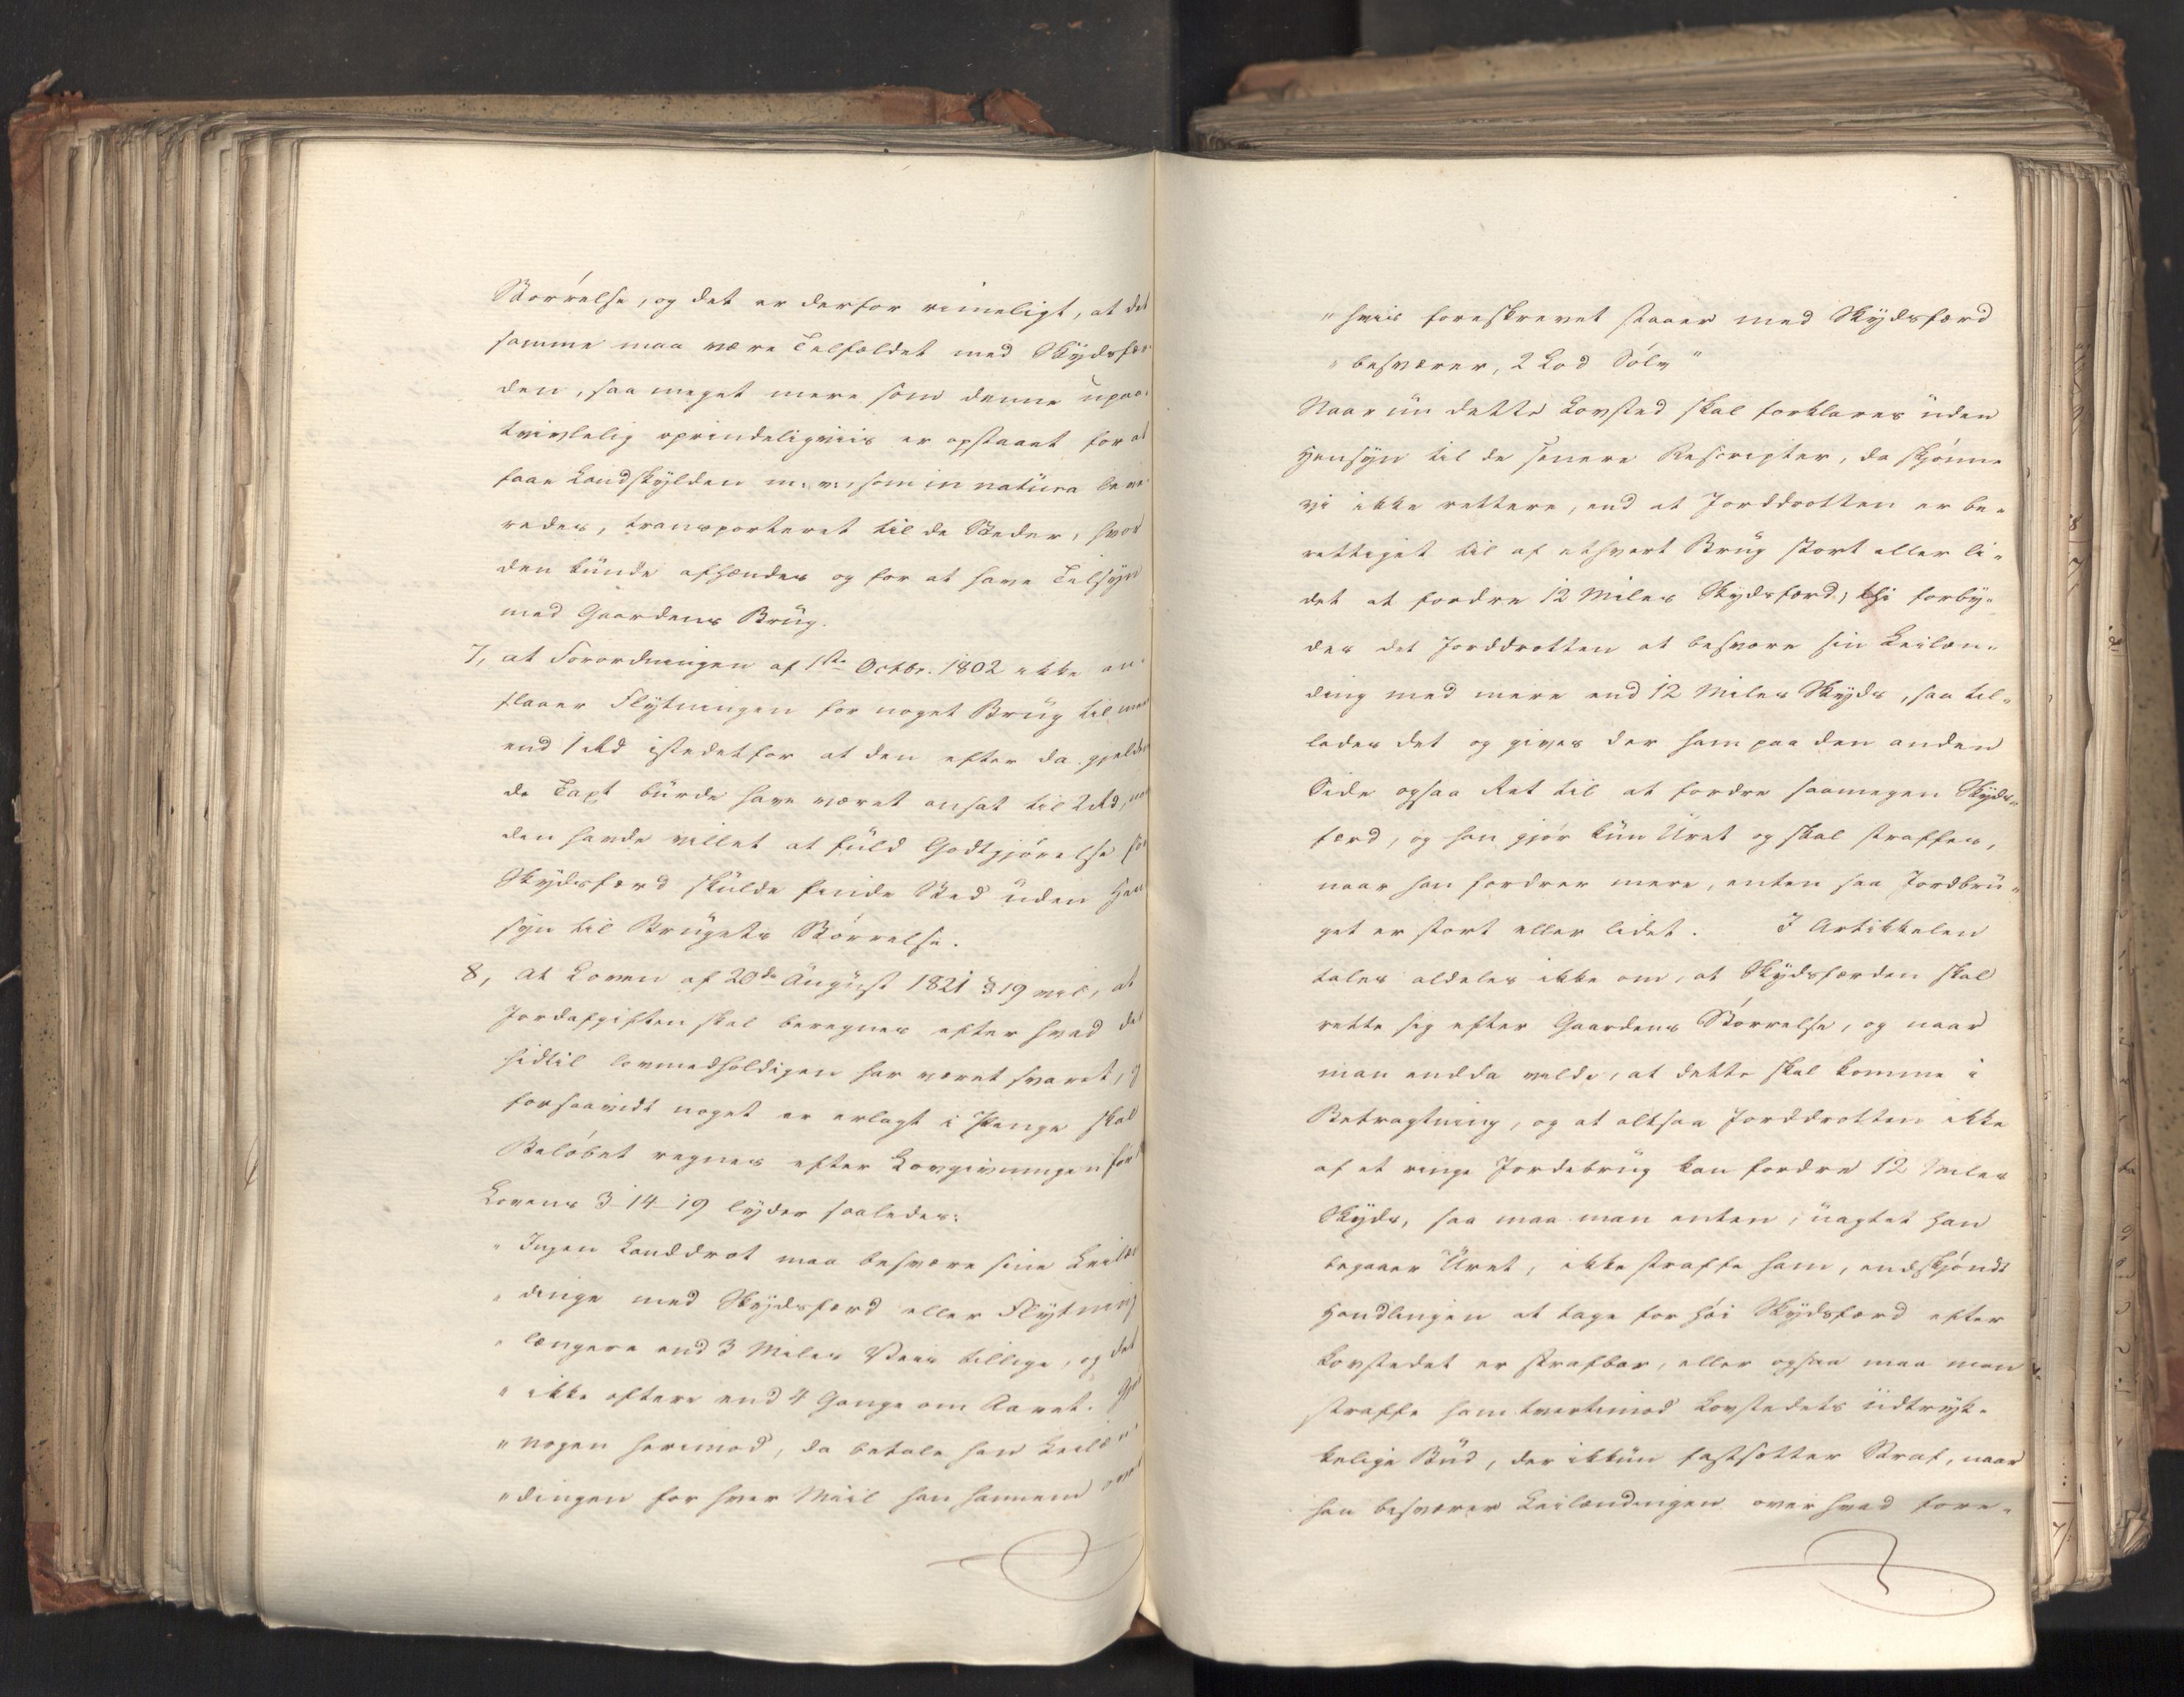 Størrelse, og det er derfor rimeligt, at det
samme maa være Tilfældet med Skydsfær
den, saa meget mere som denne upaa-
tvivlelig oprindeligviis er opstaaet for at
faae Landskylden m: v:, som in natura leve-
redes, transporteret til de Steder, hvor
den kunde afhændes og for at have Tilsyn
med Gaardens Brug.
7, at Forordningen af 1ste Octbr. 1802 ikke an-
slaaer Flytningen for noget Brug til mere
end 1 Rd istedetfor at den efter da gjelden
de Taxt burde have været ansat til 2 Rd,
den havde villet at fuld Godtgjørelse for
Skydsfærd skulde finde Sted uden Hen
syn til Brugets Størrelse.
8, At Loven af 20de August 1821 § 19 vil, at
Jordafgiften skal beregnes efter hvad det
hidtil lovmedholdigen har været svaret, og
forsaavidt noget er erlagt i Penge skal
Beløbet regnes efter Lovgivningen for
Lovens 3-14-19 lyder saaledes:
"Ingen Landdrot maa besvære sine Leilæn
"dinge med Skydsfærd eller Flytning
"længere end 3 Miles Veis tillige, og det
"ikke oftere end 4 Gange om Aaret. Gjør
"nogen herimod, da betale han Leilæn
"dingen for hver Miil han hannem over
"hviis foreskrevet staaer med Skydsfærd
"besværer, 2 Lod Sølv"
Naar nu dette Lovsted skal forklares uden
Hensyn til de senere Rescripter, da skjønne
vi ikke rettere, end at Jorddrotten er be-
rettiget til af ethvert Brug stort eller li-
det at fordre 12 Miles Skydsfærd; thi forby-
des det Jorddrotten at besvære sin Leilæn-
ding med mere end 12 Miles Skyds, saa til-
lades det og gives der ham paa den anden
Side ogsaa Ret til at fordre saamegen Skyds-
færd, og han gjør kun Uret og skal straffes,
naar han fordrer mere, enten saa Jordbru-
get er stort eller lidet. I Artikkelen
tales aldeles ikke om, at Skydsfærden skal
rette sig efter Gaardens Størrelse, og naar
man endda vilde, at dette skal komme i
Betragtning, og at altsaa Jorddrotten ikke
af et ringe Jordebrug kan fordre 12 Miles
Skyds, saa maa man enten, uagtet han
begaaer Uret, ikke straffe ham, endskjøndt
Handlingen at tage for høi Skydsfærd efter
Lovstedet er strafbar, eller ogsaa maa man
straffe ham tvertimod Lovstedets udtryk-
kelige Bud, der ikkun fastsætter Straf, naar
han besværer Leilændingen over hvad fore-